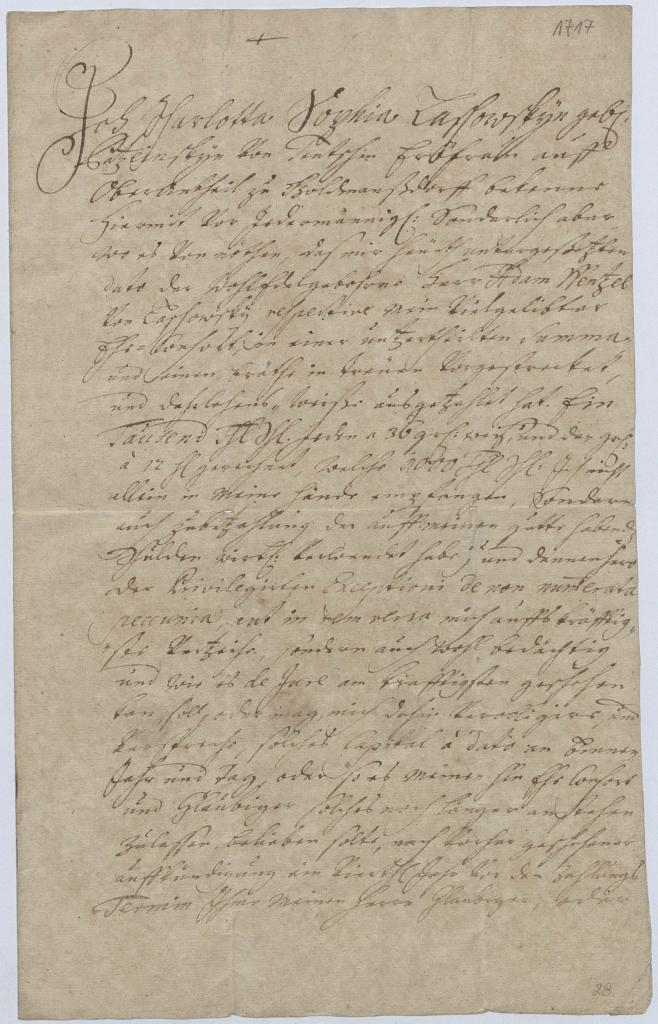 1717
+
Ich Charlotta Sophia Laßowskÿn geb:
von Erbfrau auff
Ober Antheil zu Goldmanßdorff bekenne
hiermit vor Jedermännigl: Sonderlich aber
wo es von nöthen, daß mir heüth untergesetzten
dato der WohlEdelgebohrne Herr Adam Wentzel
von Laßowskÿ respective mein Vielgeliebter
Ehe-Consort, in einer unzertheilten Summa
und seinen in treüen Vorgestrecket,
und darlehens Weiße außgezahlet hat. Ein
Tausend Thl. Jeden a 36 grl: und den grl:
à 12 hl gerechnet, welche 1000 Thl. Ich nicht
allein in Meine Hände empfangen, Sondern
auch zubezahlung der auff meinen gutte habend
Schulden verwendet habe; und dannenhero
der Privilegirten Exceptioni de non numerata
peccunia, aut in rem versa mich auffs kräfftig-
ste Verzeihe, sondern auch Wohl bedächtig
und wie es de Jure am kräfftigsten geschehen
kan, soll, oder mag, mich dahin und
Verspreche, solches Capital à dato an binnen
Jahr und Tag, oder so es meinen Ehe Consort
und Glaubiger solches noch länger anstehen
zulassen, belieben solte, nach vorher geschehener
auffkündigung ein Viertl Jahr vor den Zahlungs
Termin Ihme meinen Herrn Glaubiger, oder
28